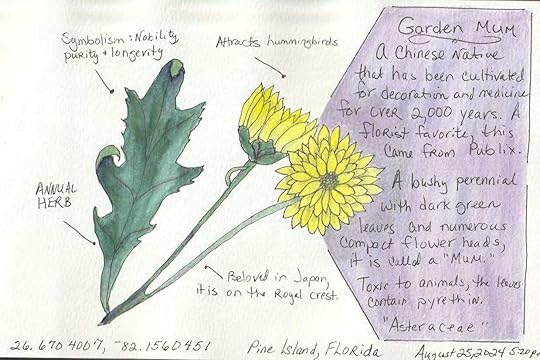 Symbolism: Nobility,
purity + longevity
Attracts hummingbirds
ANNUAL
HERB
Beloved in Japan,
it is on the Royal crest.
Garden Mum
A Chinese Native
that has been cultivated
for decoration and medicine
for over 2,000 years. A
florist favorite, this
came from Publix.
A bushy perennial
with dark green
leaves and numerous
compact flower heads,
it is called a "Mum."
Toxic to animals, the leaves
contain pyrethin.
"Asteraceae"
26.6704007, -82.1560451
Pine Island, Florida
August 25, 2024 5:20pm